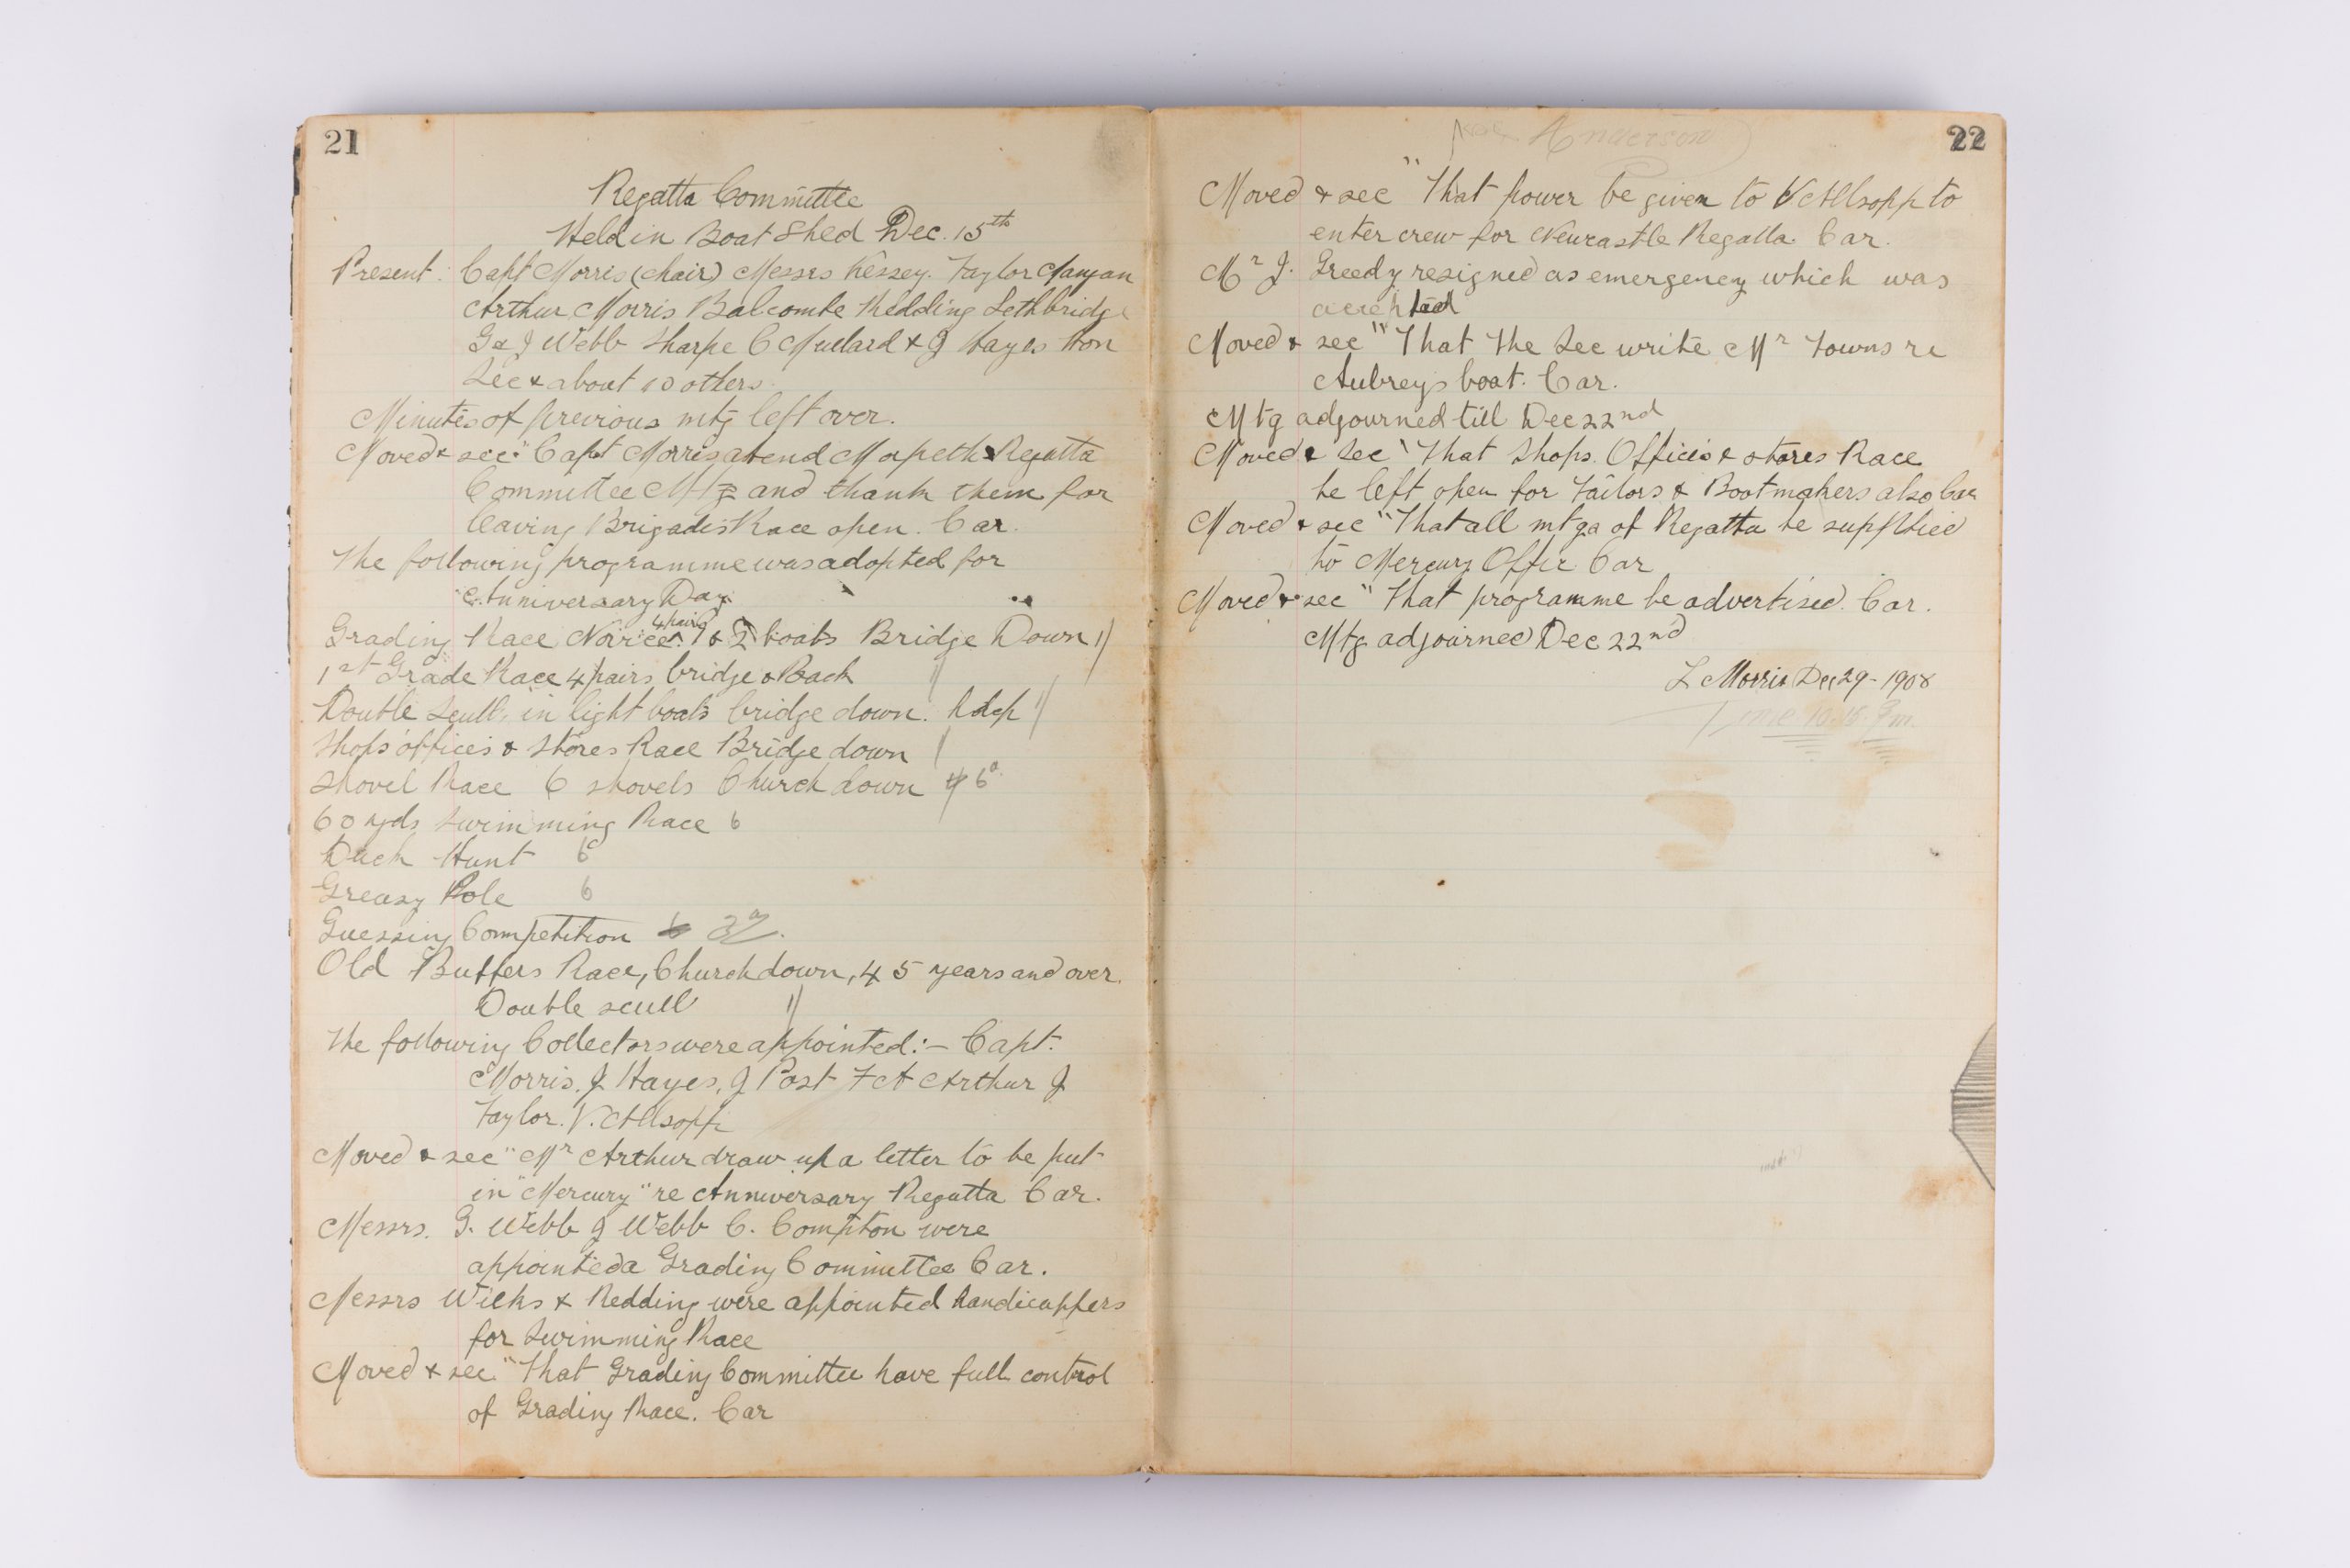 21
Regatta Committee
Held in Boat Shed Dec. 15th
Present: Capt Morris (chair) Messrs Kessey. Taylor Manyan
Arthur Morris Balcombe Redding Lethbridge
G & J Webb Sharpe C Mullard & J Hayes Hon
Sec & about 10 others.
Minutes of previous mtg left over.
Moved & sec "Capt Morris attend Morpeth Regatta
Committee Mtg and thank them for
leaving Brigades Race open. Car.
The following programme was adopted for
Anniversary Day.
4 pairs
Grading Race Novice 1 & 2 boats Bridge Down 1/
1st Grade Race 4 pairs bridge & Back 1/
Double Sculls in light boats bridge down. hdcp 1/
Shops offices & Stores Race Bridge down 1/
Shovel Race 6 shovels Church down 6d
60 yds Swimming Race 6
Duck Hunt 6d
Greasy Pole 6
Guessing Competition 3d
Old Buffers Race, Church down, 45 years and over.
Double scull 1/
The following Collectors were appointed:- Capt.
Morris. J Hayes, J Post F A Arthur J
Taylor. V. Allsopp
Moved & sec "Mr Arthur draw up a letter to be put
in "Mercury" re Anniversary Regatta Car.
Messrs. G. Webb J Webb C. Compton were
appointed a Grading Committee Car.
Messrs Wilks & Redding were appointed handicappers
for Swimming Race
Moved & sec "That Grading Committee have full control
of Grading Race. Car
22
Anderson
Moved & sec "That power be given to V Allsopp to
enter crew for Newcastle Regatta. Car.
Mr J. Greedy resigned as emergency which was
accepted
Moved & sec "That the Sec write Mr Towns re
Aubreys boat. Car.
Mtg adjourned till Dec 22nd
Moved & Sec "That Shops. Offices & stores Race
be left open for Tailors & Bootmakers also Car
Moved & sec "That all mtgs of Regatta be supplied
to Mercury Offic Car
Moved & sec "That programme be advertised. Car.
Mtg adjourned Dec 22nd
L Morris Dec 29-1908
Time 10.15 Pm.